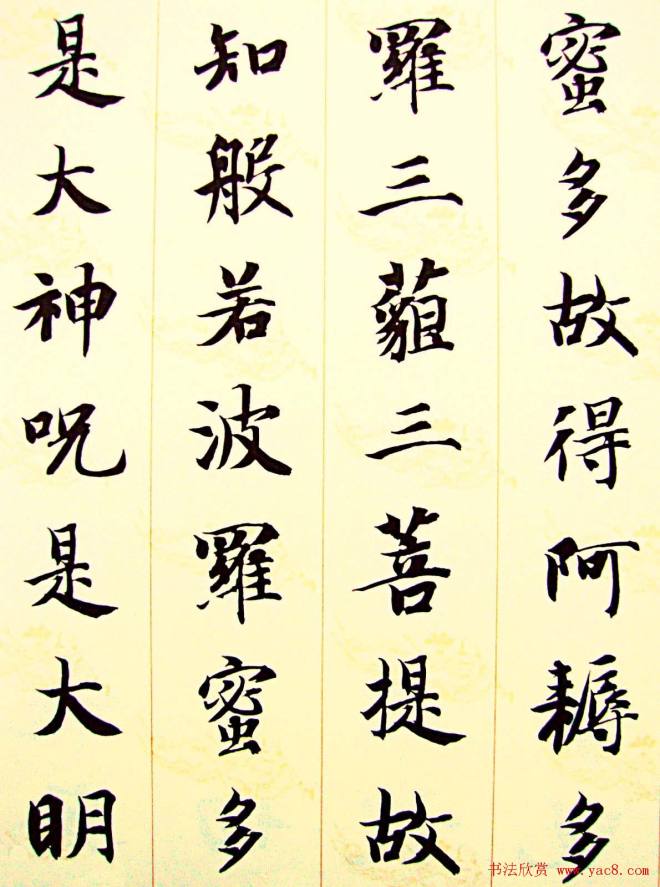 蜜多故得阿耨多
羅三藐三菩提故
知般若波羅蜜多
是大神呪是大明
书法欣赏 www.yac8.com